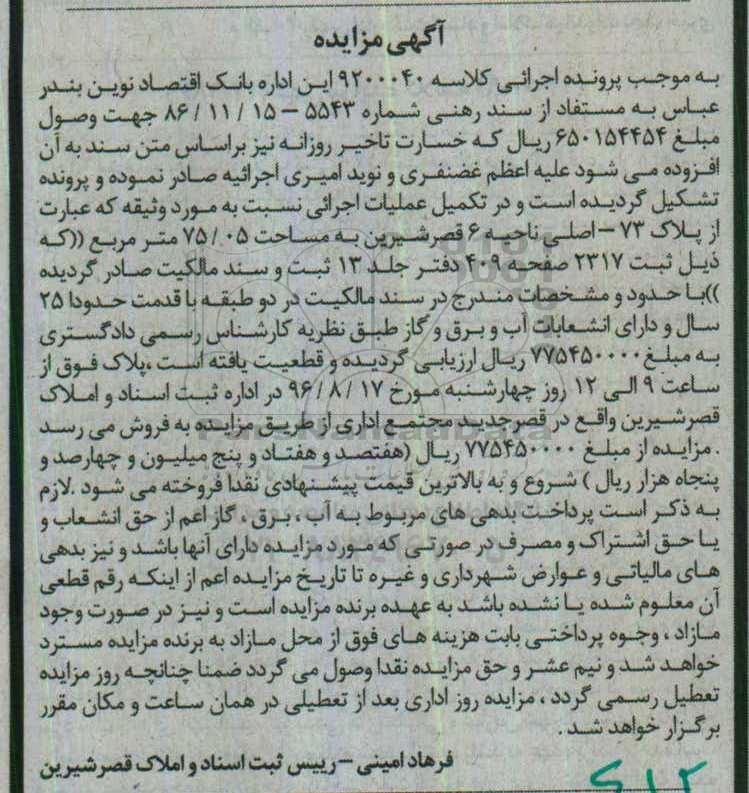 آگهی مزایده
به موجب پرونده اجرائی کلاسه ۹۲۰۰۰۴۰ این اداره بانک اقتصاد نوین بندر
عباس به مستفاد از سند رهنی شماره ۵۵۴۳ – ۱۵ / ۱۱ / ۸۶ جهت وصول
مبلغ ۶۵۰۱۵۴۴۵۴ ریال که خسارت تاخیر روزانه نیز براساس متن سند به آن
افزوده می شود علیه اعظم غضنفری و نوید امیری اجرائیه صادر نموده و پرونده
تشکیل گردیده است و در تکمیل عملیات اجرائی نسبت به مورد وثیقه که عبارت
از پلاک ۷۳ – اصلی ناحیه ۶ قصرشیرین به مساحت ۰۵ / ۷۵ متر مربع ((که
ذیل ثبت ۲۳۱۷ صفحه ۴۰۹ دفتر جلد ۱۳ ثبت و سند مالکیت صادر گردیده
))با حدود و مشخصات مندرج در سند مالکیت در دو طبقه با قدمت حدودا ۲۵
سال و دارای انشعابات آب و برق و گاز طبق نظریه کارشناس رسمی دادگستری
به مبلغ ۷۷۵۴۵۰۰۰۰ ریال ارزیابی گردیده و قطعیت یافته است ،پلاک فوق از
ساعت ۹ الی ۱۲ روز چهارشنبه مورخ ۱۷ / ۸ / ۹۶ در اداره ثبت اسناد و املاک
قصرشیرین واقع در قصرجدید مجتمع اداری از طریق مزایده به فروش می رسد
. مزایده از مبلغ ۷۷۵۴۵۰۰۰۰ ریال (هفتصد و هفتاد و پنج میلیون و چهارصد و
پنجاه هزار ریال ) شروع و به بالاترین قیمت پیشنهادی نقدا فروخته می شود .لازم
به ذکر است پرداخت بدهی های مربوط به آب ، برق ، گاز اعم از حق انشعاب و
یا حق اشتراک و مصرف در صورتی که مورد مزایده دارای آنها باشد و نیز بدهی
های مالیاتی و عوارض شهرداری و غیره تا تاریخ مزایده اعم از اینکه رقم قطعی
آن معلوم شده یا نشده باشد به عهده برنده مزایده است و نیز در صورت وجود
مازاد ، وجوه پرداختی بابت هزینه های فوق از محل مازاد به برنده مزایده مسترد
خواهد شد و نیم عشر و حق مزایده نقدا وصول می گردد ضمنا چنانچه روز مزایده
تعطیل رسمی گردد ، مزایده روز اداری بعد از تعطیلی در همان ساعت و مکان مقرر
برگزار خواهد شد .
فرهاد امینی – رییس ثبت اسناد و املاک قصرشیرین